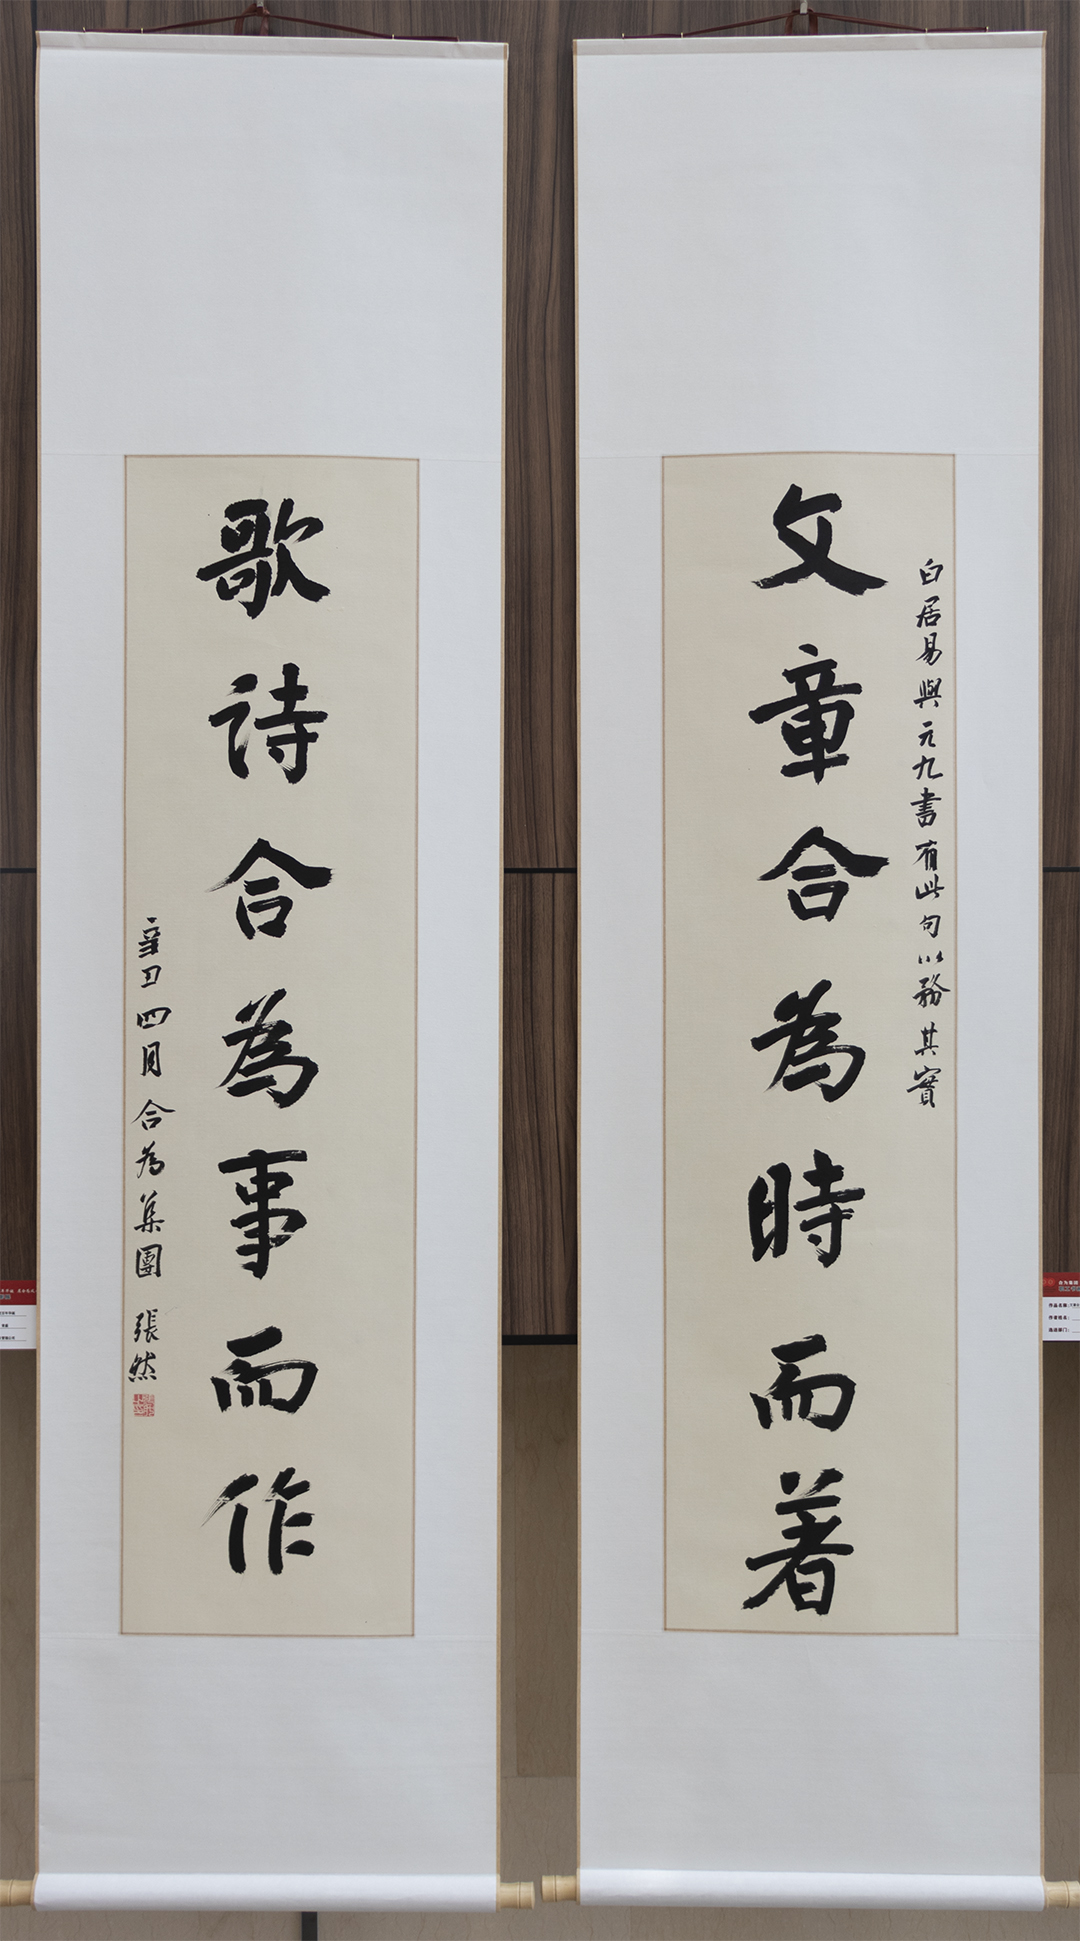 白居易與元九書有此句以務其實
文章合為時而著
歌诗合為事而作
辛丑四月合為集團張然